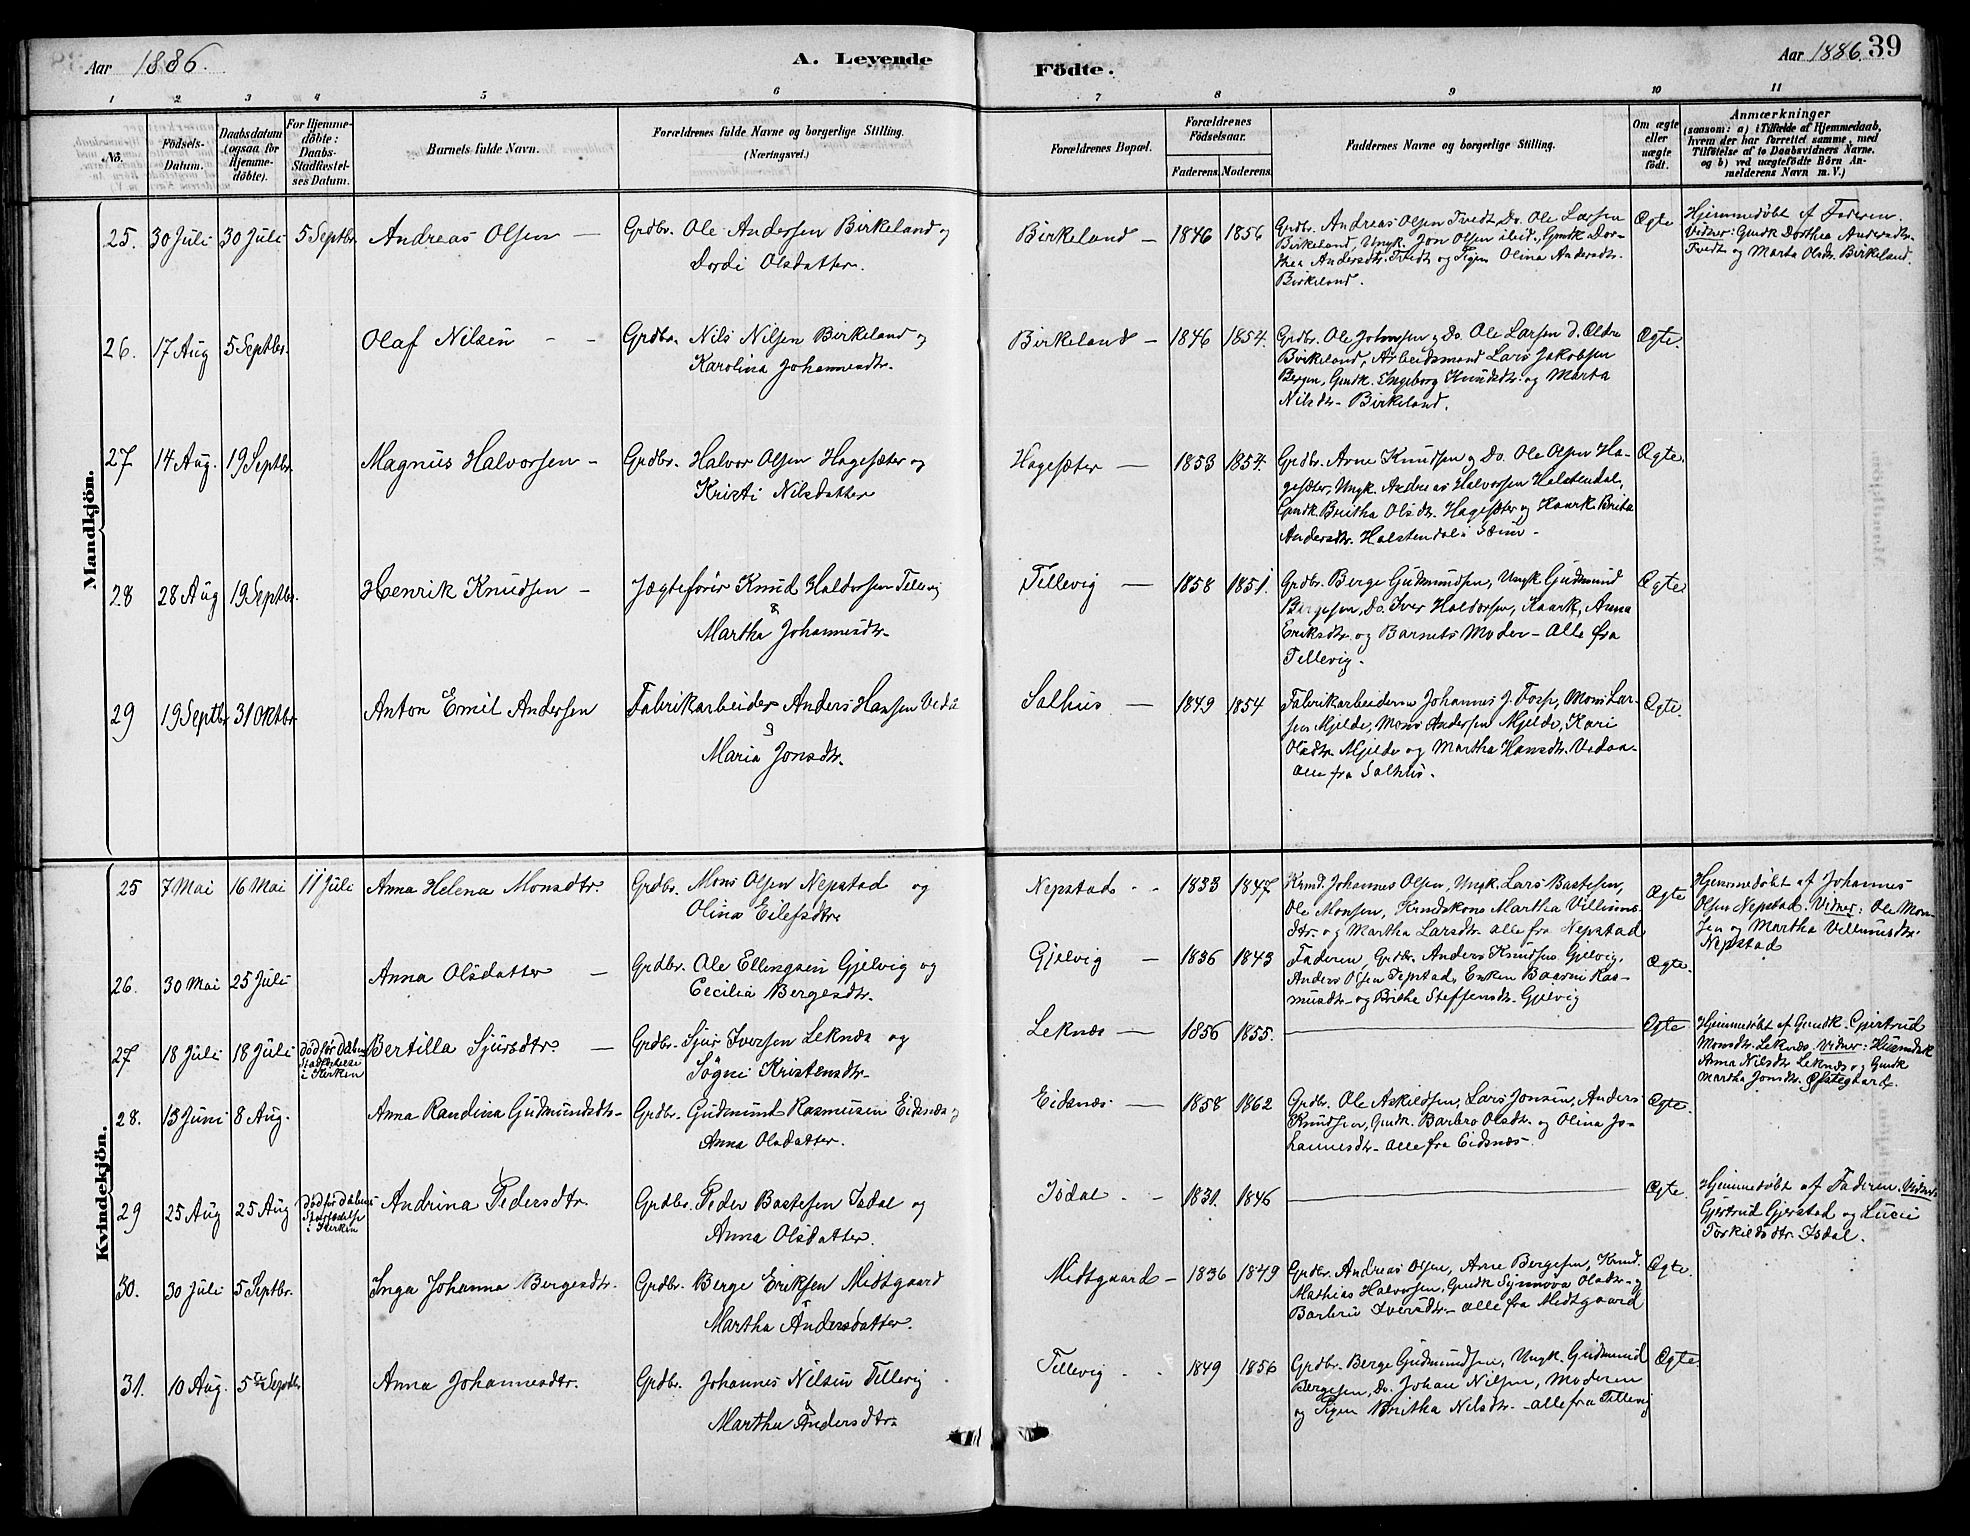 Aar 1886.
A. Levende
Födte.
Aar 1886. 39
1 2 3 4 5 6 7 8 9 10 11
No.
Födsels-Datum.
Daabsdatum (ogsaa for Hjemme-döbte).
For Hjemme-döbte: Daabs-Stadfæstel-ses Datum.
Barnets fulde Navn.
Forældrenes fulde Navne og borgerlige Stilling.
(Næringsvei.)
Forældrenes Bopæl.
Forældrenes Födselsaar.
Faderens. Moderens.
Faddernes Navne og borgerlige Stilling.
Om ægte eller uægte födt.
Anmærkninger
(saasom: a) i Tilfælde af Hjemmedaab,
hvem der har forrettet samme, med
Tilföielse af to Daabsvidners Navne.
og b) ved uægtefödte Börn An-
melderens Navn m. V.)
Mandkjön.
25. 30 Juli 30 Juli 5 Septbr. Andreas Olsen – Grdbr. Ole Andersen Birkeland og
Dordi Olsdatter.
Birkeland – 1846 1856
Grdbr. Andreas Olsen Tvedt, Do. Ole Larsen
Birkeland, Ungk. Jon Olsen ibid., Gmdk Dor-
thea Andersdtr. Tvedt og Pigen Olina Andersdtr.
Birkeland.
Ægte
Hjemmedøbt af Faderen.
Vidner: Gmdk Dorthea Andersdtr.
Tvedt og Marta Olsdtr. Birkeland.
26. 17 Aug 5 Septbr. Olaf Nilsen – – Grdbr. Nils Nilsen Birkeland og
Karolina Johannesdtr.
Birkeland – 1846 1854.
Grdbr. Ole Johnsen og Do. Ole Larsen d. Ældre
Birkeland, Arbeidsmand Lars Jakobsen
Bergen, Gmdk. Ingeborg Knudsdtr. og Marta
Nilsdtr. Birkeland.
Ægte.
27 14 Aug. 19 Septbr. Magnus Halvorsen – Grdbr. Halvor Olsen Hagesæter og
Kristi Nilsdatter
Hagesæter – 1853 1854.
Grdbr. Arne Knudsen og Do. Ole Olsen Ha-
gesæter, Ungk. Andreas Halvorsen Holstendal,
Gmdk. Britha Olsdtr. Hagesæter og Kaark. Brita
Andersdtr. Holstendal i
Ægte.
28 28 Aug 19 Septbr. Henrik Knudsen – Jægtefører Knud Haldorsen Tellevig
&
Martha Johannesdtr.
Tellevig – 1858 1851.
Grdbr. Berge Gudmundsen, Ungk Gudmund
Bergesen, Do. Iver Haldorsen, Kaark. Anna
Eriksdtr. og Barnets Moder – Alle fra
Tellevig.
Ægte
29 19 Septbr. 31 Oktbr. Anton Emil Andersen Fabrikarbeider Anders Hansen
&
Maria Jonsdtr.
Salhus – 1849 1854
Fabrikarbeiderne Johannes J. Foss, Mons Lar-
sen Mjelde, Mons Andersen Mjelde, Kari
Olsdtr. Mjelde og Martha Hansdtr. Vedaa –
alle fra Salhus.
Ægte.
Kvindekjön.
25 7 Mai 16 Mai 11 Juli Anna Helena Monsdtr. Grdbr. Mons Olsen Nepstad og
Olina Eilefsdtr.
Nepstad – – 1833 1847
Krmd. Johannes Olsen, Ungk. Lars Bastesen,
Ole Monsen, Krmdskone Martha Villums-
dtr. og Martha Larsdtr. alle fra Nepstad
Ægte
Hjemmedøbt af Johannes
Olsen Nepstad. Vidner: Ole Mon-
sen og Martha Villumsdtr.
Nepstad
26. 30 Mai 25 Juli Anna Olsdatter – Grdbr. Ole Ellingsen Gjelvig og
Cecilia Bergesdtr.
Gjelvig – 1836 1843
Faderen, Grdbr. Anders Knudsen Gjelvig,
Anders Olsen Tepstad, Enken Baarni Ras-
musdtr. og Brithe Steffensdtr. Gjelvig
Ægte.
27 18 Juli 18 Juli død før Daabens
Stadfæstelse
i Kirken Bertilla Sjursdtr. – Grdbr. Sjur Iversen Leknæs og
Søgni Kristensdtr.
Leknæs – 1856 1855.
Ægte
Hjemmedøbt af Gmdk. Gjertrud
Monsdtr. Leknæs. Vidner: Husmdsk
Anna Nilsdtr Leknæs og Gmdk
Martha Jonsdtr.
28. 13 Juni 8 Aug. Anna Randina Gudmundsdtr. Grdbr. Gudmund Rasmusen Eidsnæs og
Anna Olsdatter.
Eidsnæs – 1858 1862
Grdbr. Ole Askildsen, Lars Jonsen, Anders
Knudsen, Gmdk. Barbro Olsdtr. og Olina Jo-
hannesdtr. – alle fra Eidsnæs.
Ægte.
29 25 Aug 25 Aug død før Daabens
Stadfæstelse
i Kirken Andrina Pedersdtr. Grdbr. Peder Bastesen Isdal og
Anna Olsdatter.
Isdal – – 1831. 1846
Ægte.
Hjemmedøbt af Faderen. Vidner:
Gjertrud Gjerstad og Lucie
Torkildsdtr. Isdal.
30. 30 Juli 5 Septbr. Inga Johanna Bergesdtr. Grdbr. Berge Eriksen Midtgaard
&
Martha Andersdatter.
Midtgaard – 1836 1849
Grdbr. Andreas Olsen, Arne Bergesen, Krmd.
Mathias Halvorsen, Gmdk Synnova Olsdtr. og
Barbru Iversdtr. – alle fra Midtgaard
Ægte.
31. 10 Aug. 5te Septbr Anna Johannesdtr. Grdbr. Johannes Nilsen Tellevig
&
Martha Andersdtr.
Tellevig – – 1849 1856
Grdbr. Berge Gudmundsen, Ungk. Gudmund
Bergesen, Do. Johan Nilsen, Moderen
og Pigen Britha Nilsdtr. – alle fra Tellevig
Ægte.